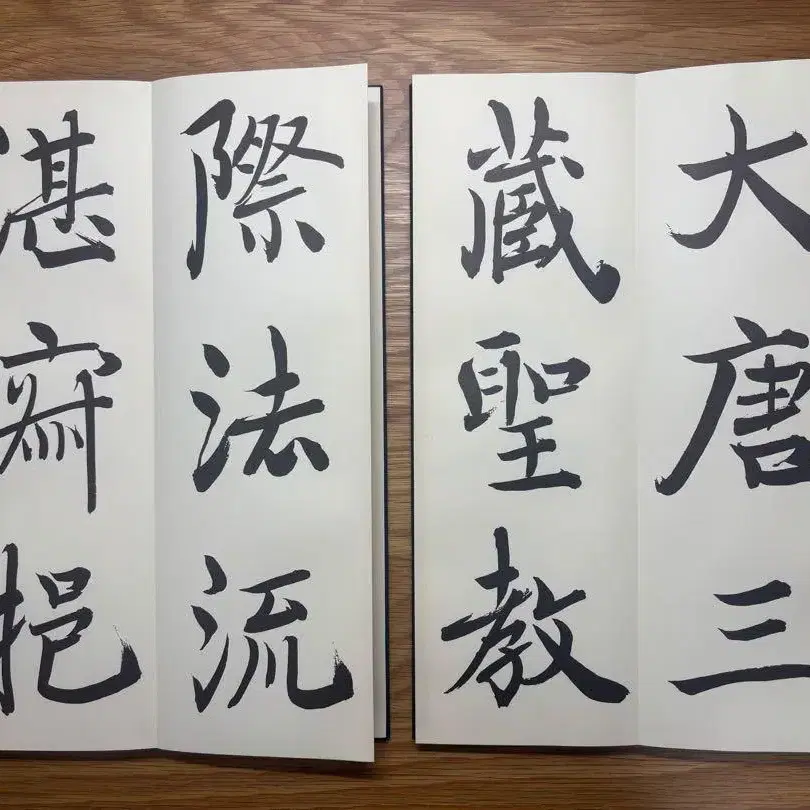 大唐三
藏聖教
際法流
湛寂挹